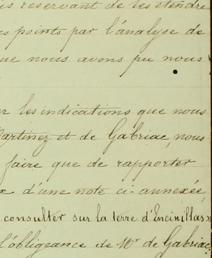 us réservant de les étendre
s points par l'analyse de
que nous avons pu nous
r les indications que nous
Martinez et de Gabriac, nous
faire que de rapporter
d'une note ci-annexée,
consulter sur la terre d'Encinillas
l'obligeance de Mr de Gabriac